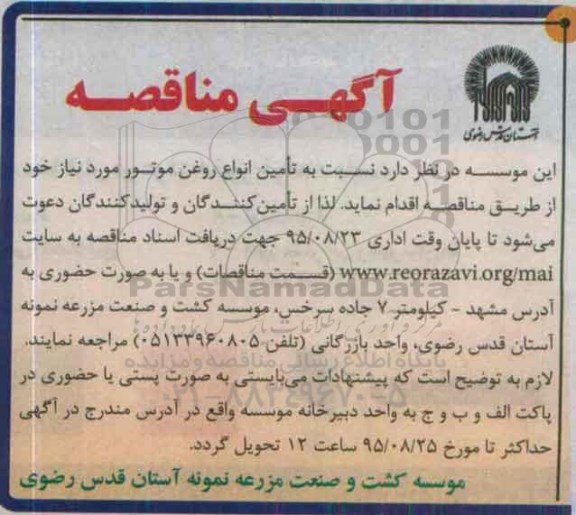 آستان قدس رضوی
آگهی مناقصه
این موسسه در نظر دارد نسبت به تأمین انواع روغن موتور مورد نیاز خود
از طریق مناقصه اقدام نماید. لذا از تأمین‌کنندگان و تولیدکنندگان دعوت
می‌شود تا پایان وقت اداری ۹۵/۰۸/۲۳ جهت دریافت اسناد مناقصه به سایت
www.reorazavi.org/mai (قسمت مناقصات) و یا به صورت حضوری به
آدرس مشهد - کیلومتر ۷ جاده سرخس، موسسه کشت و صنعت مزرعه نمونه
آستان قدس رضوی، واحد بازرگانی (تلفن ۰۵۱۳۳۹۶۰۸۰۵) مراجعه نمایند.
لازم به توضیح است که پیشنهادات می‌بایستی به صورت پستی یا حضوری در
پاکت الف و ب و ج به واحد دبیرخانه موسسه واقع در آدرس مندرج در آگهی
حداکثر تا مورخ ۹۵/۰۸/۲۵ ساعت ۱۲ تحویل گردد.
موسسه کشت و صنعت مزرعه نمونه آستان قدس رضوی
ParsNamadData
پایگاه اطلاع رسانی مناقصه و مزایده
۰۲۱-۸۸۳۴۹۶۷۰-۵